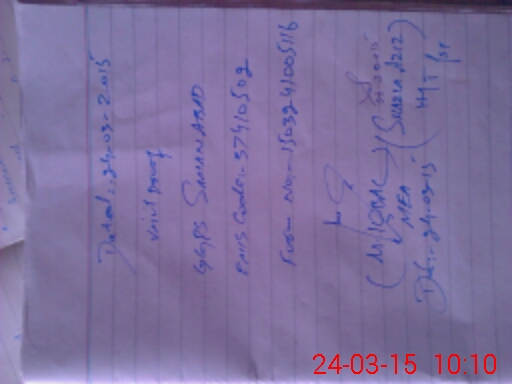 Dated:- 24-03-2015
Visit proof
GGPS SAMANABAD
EMIS Code:- 37410502
Form No:- 1503241005116
(M IQBAL)
MEA
Dt:- 24-03-15
(SHAZIA AZIZ)
24-03-15 10:10